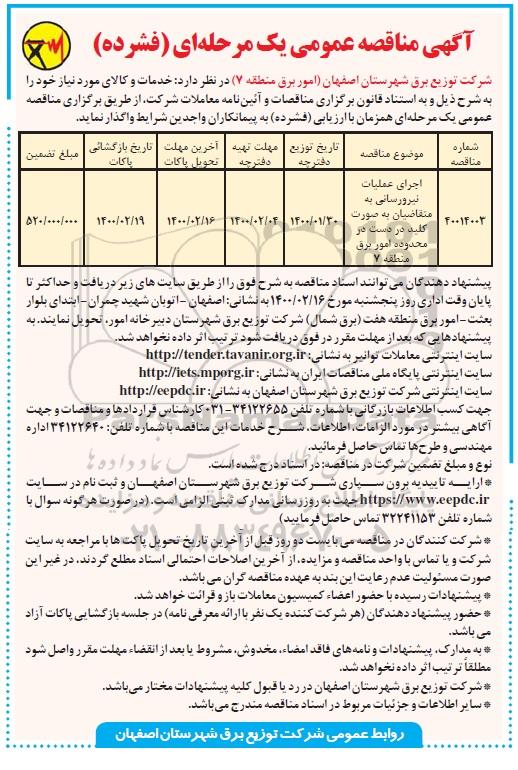 آگهی مناقصه عمومی یک مرحله‌ای (فشرده)
شرکت توزیع برق شهرستان اصفهان (امور برق منطقه ۷) در نظر دارد: خدمات و کالای مورد نیاز خود را
به شرح ذیل و به استناد قانون برگزاری مناقصات و آئین‌نامه معاملات شرکت، از طریق برگزاری مناقصه
عمومی یک مرحله‌ای همزمان با ارزیابی (فشرده) به پیمانکاران واجدین شرایط واگذار نماید.
شماره مناقصه
موضوع مناقصه
تاریخ توزیع دفترچه
مهلت تهیه دفترچه
آخرین مهلت تحویل پاکات
تاریخ بازگشائی پاکات
مبلغ تضمین
۴۰۰۱۴۰۰۳
اجرای عملیات
نیرورسانی به
متقاضیان به صورت
کلید در دست در
محدوده امور برق
منطقه ۷
۱۴۰۰/۰۱/۳۰
۱۴۰۰/۰۲/۰۴
۱۴۰۰/۰۲/۱۶
۱۴۰۰/۰۲/۱۹
۵۲۰/۰۰۰/۰۰۰
پیشنهاد دهندگان می توانند اسناد مناقصه به شرح فوق را از طریق سایت های زیر دریافت و حداکثر تا
پایان وقت اداری روز پنجشنبه مورخ ۱۴۰۰/۰۲/۱۶ به نشانی: اصفهان - اتوبان شهید چمران - ابتدای بلوار
بعثت - امور برق منطقه هفت (برق شمال) شرکت توزیع برق شهرستان دبیرخانه امور، تحویل نمایند. به
پیشنهادهایی که بعد از مهلت مقرر در فوق دریافت شود ترتیب اثر داده نخواهد شد.
سایت اینترنتی معاملات توانیر به نشانی: http://tender.tavanir.org.ir
سایت اینترنتی پایگاه ملی مناقصات ایران به نشانی: http://iets.mporg.ir
سایت اینترنتی شرکت توزیع برق شهرستان اصفهان به نشانی: http://eepdc.ir
جهت کسب اطلاعات بازرگانی با شماره تلفن ۳۴۱۲۲۶۵۵-۰۳۱ کارشناس قراردادها و مناقصات و جهت
آگاهی بیشتر در مورد الزامات، اطلاعات، شرح خدمات این مناقصه با شماره تلفن: ۳۴۱۲۲۶۴۰ اداره
مهندسی و طرح‌ها تماس حاصل فرمائید.
نوع و مبلغ تضمین شرکت در مناقصه: در اسناد درج شده است.
* ارایه تاییدیه برون سپاری شرکت توزیع برق شهرستان اصفهان و ثبت نام در سایت
https://www.eepdc.ir جهت به روزرسانی مدارک ثبتی الزامی است. (در صورت هرگونه سوال با
شماره تلفن ۳۲۲۴۱۱۵۳ تماس حاصل فرمایید)
* شرکت کنندگان در مناقصه می بایست دو روز قبل از آخرین تاریخ تحویل پاکت ها با مراجعه به سایت
شرکت و یا تماس با واحد مناقصه و مزایده، از آخرین اصلاحات احتمالی اسناد مطلع گردند، در غیر این
صورت مسئولیت عدم رعایت این بند به عهده مناقصه گران می باشد.
* پیشنهادات رسیده با حضور اعضاء کمیسیون معاملات باز و قرائت خواهد شد.
* حضور پیشنهاد دهندگان (هر شرکت کننده یک نفر با ارائه معرفی نامه) در جلسه بازگشایی پاکات آزاد
می باشد.
* به مدارک، پیشنهادات و نامه‌های فاقد امضاء، مخدوش، مشروط یا بعد از انقضاء مهلت مقرر واصل شود
مطلقاً ترتیب اثر داده نخواهد شد.
* شرکت توزیع برق شهرستان اصفهان در رد یا قبول کلیه پیشنهادات مختار می‌باشد.
* سایر اطلاعات و جزئیات مربوط در اسناد مناقصه مندرج می‌باشد.
روابط عمومی شرکت توزیع برق شهرستان اصفهان